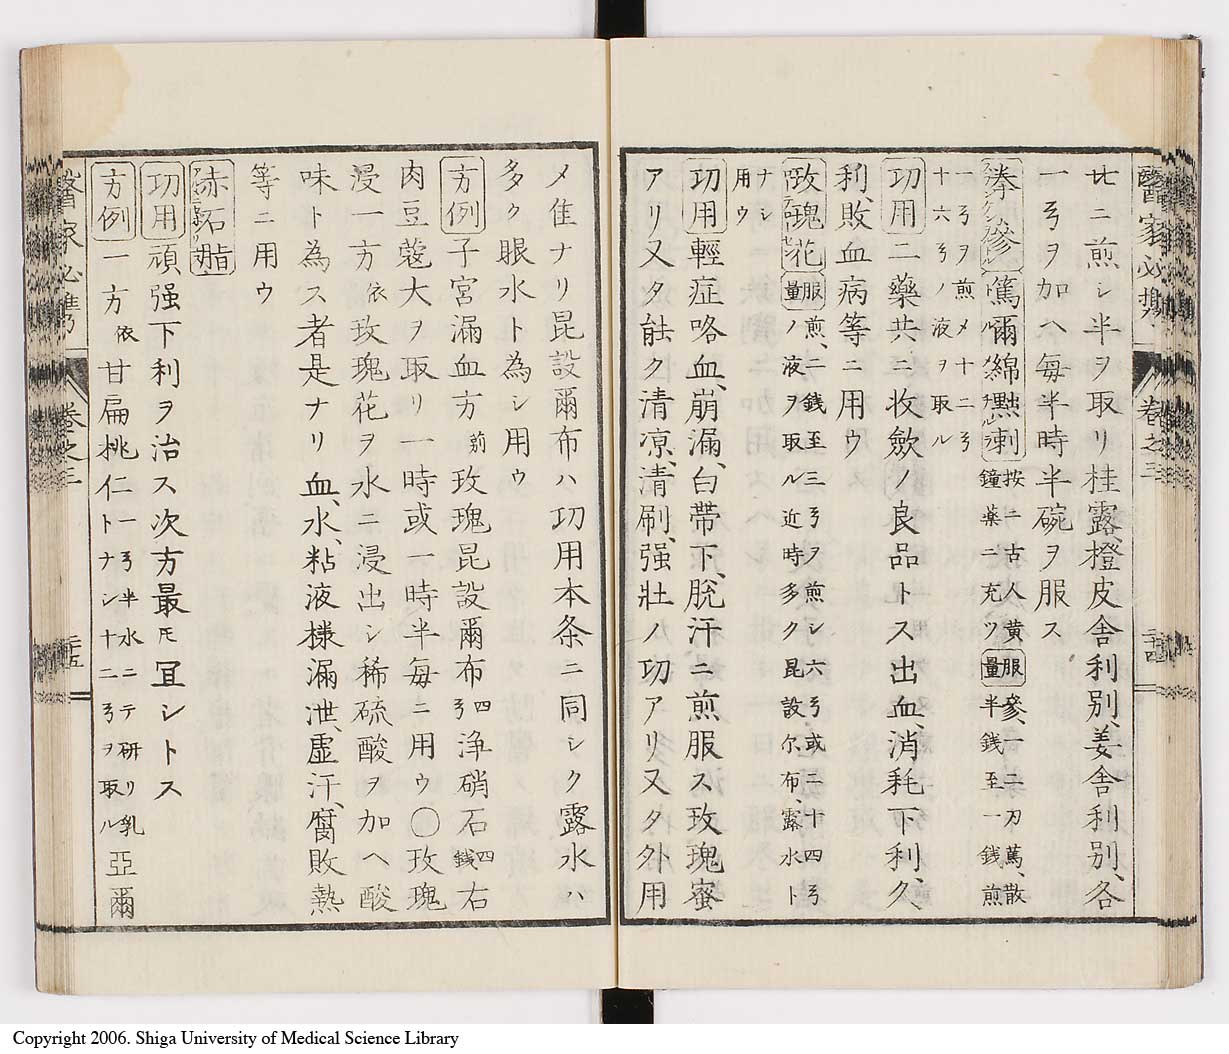 醫家必携 卷之三 二十四
ヒニ煎シ半ヲ取リ桂露、橙皮舎利別、姜舎利別、各
一弓ヲ加ヘ每半時半碗ヲ服ス
拳參 篤爾綿點刺 按ニ古人黄參、二刀篤、散
鐘藥ニ充ツ 服量 半銭至一銭煎
一弓ヲ煎メ十二弓
十六弓ノ液ヲ取ル
功用 二藥共ニ收斂ノ良品トス出血、消耗下利、久
利、敗血病等ニ用ウ
玫瑰花 服量 煎、二銭至三弓ヲ煎シ六弓或二十四弓
ノ液ヲ取ル近時多ク昆設尓布、露水ト
ナシ
用ウ
功用 輕症咯血、崩漏、白帶下、脱汗ニ煎服ス玫瑰蜜
アリ又タ能ク清凉、清刷、强壮ノ功アリ又タ外用
メ佳ナリ昆設爾布ハ功用本条ニ同シク露水ハ
多ク眼水ト為シ用ウ
方例 子宮漏血方 前 玫瑰昆設爾布 四弓 浄硝石 四銭 右
肉豆蔲大ヲ取リ一時或一時半每ニ用ウ〇玫瑰
浸一方 依 玫瑰花ヲ水ニ浸出シ稀硫酸ヲ加ヘ酸
味ト為ス者是ナリ血、水、粘液様漏泄、虚汗、腐敗熱
等ニ用ウ
赤石脂
功用 頑强下利ヲ治ス次方最モ宜シトス
方例 一方 依 甘扁桃仁 一弓半水ニテ研リ乳
トナシ十二弓ヲ取ル 亞爾
醫家必携 卷之三 二十五
Copyright 2006. Shiga University of Medical Science Library